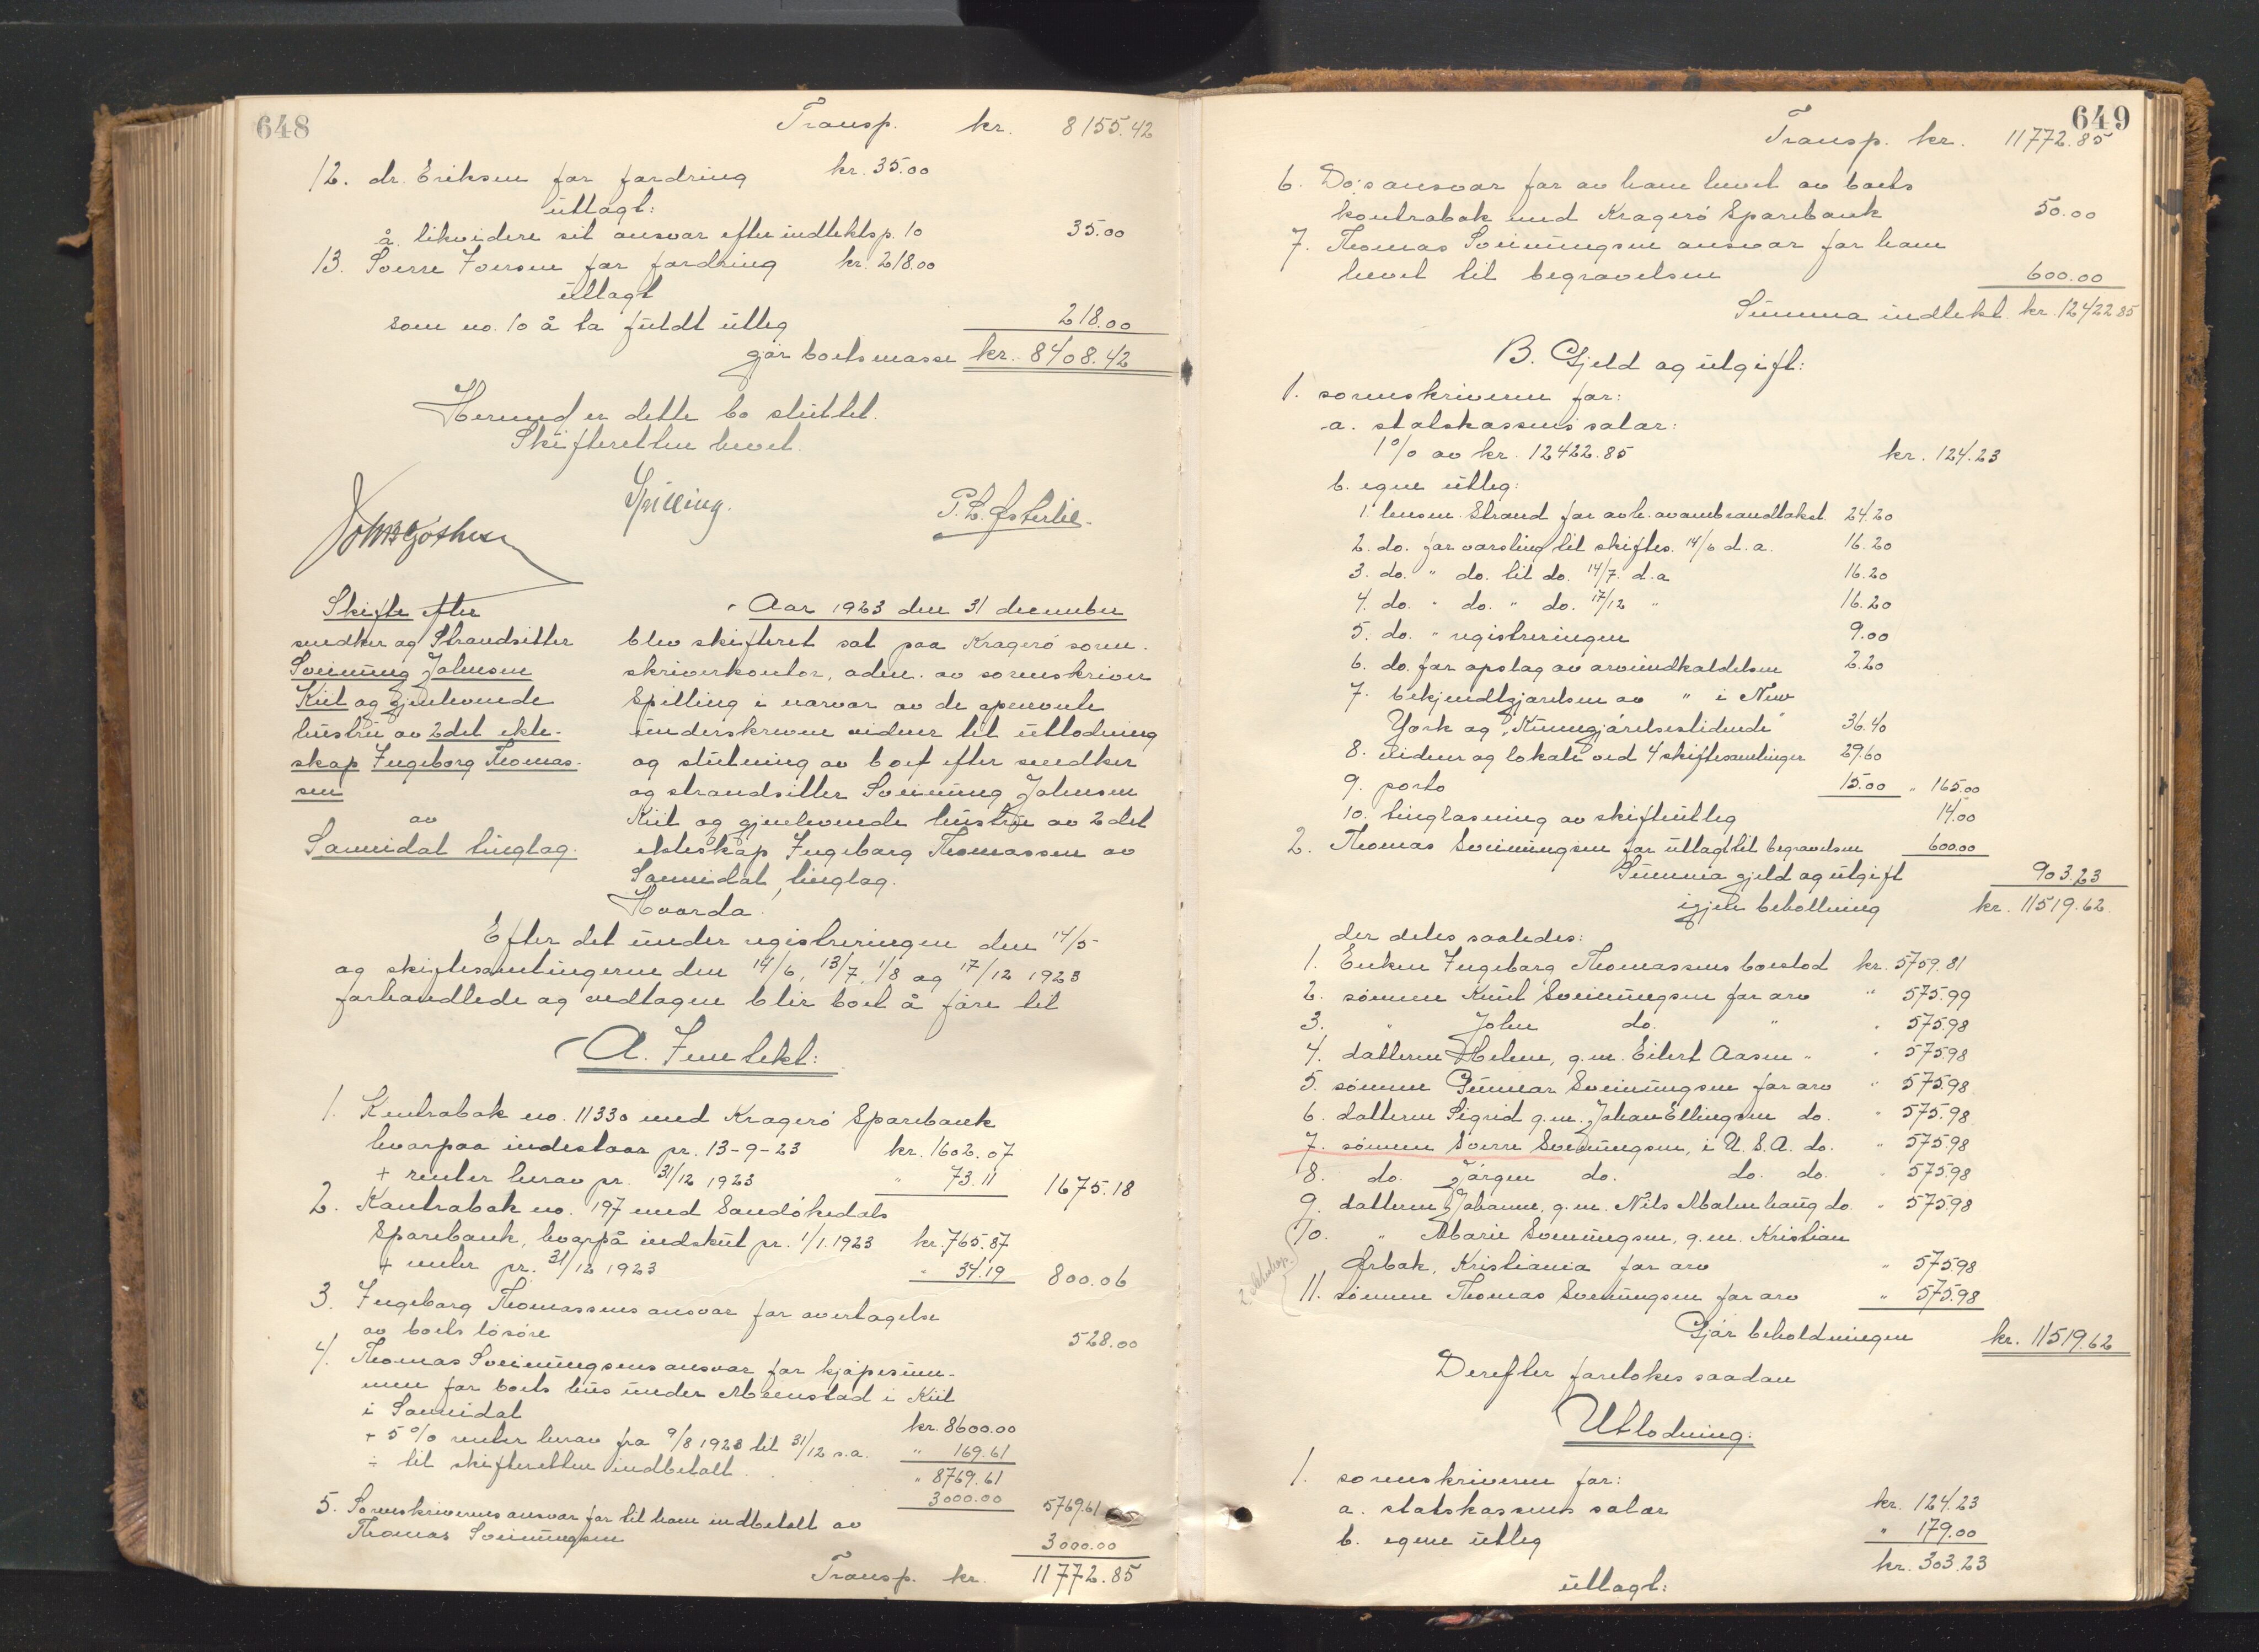 648
Transp. kr. 8155.42
12. dr. Eriksen for fordring kr. 35.00
utlagt:
å likvidere sit ansvar efter indtektsp. 10 35.00
13. Sverre Iversen for fordring kr. 218.00
utlagt
som no. 10 å ta fuldt utlæg 218.00
gjør boets masse kr. 8408.42
Hermed er dette bo sluttet.
Skifteretten hevet.
Spilling.
P. L. Østerlie.
Skifte efter
snedker og Strandsitter
Sveinung Johnsen
Kiil og gjenlevende
hustru av 2det ekte-
skap Ingeborg Thomas-
sen
av
Sannidal tinglag.
Aar 1923 den 31 december
blev skifteret sat paa Kragerø soren-
skriverkontor, adm. av sorenskriver
Spilling i nærvær av de opnevnte
underskrevne vidner til utlodning
og slutning av boet efter snedker
og strandsitter Sveinung Johnsen
Kiil og gjenlevende hustru av 2det
ekteskap Ingeborg Thomassen av
Sannidal tinglag.
Hvorda:
Efter det under registreringen den 14/5
og skiftesamlingerne den 14/6, 13/7, 1/8 og 17/12 1923
forhandlede og vedtagne blir boet å føre til
A. Inntekt:
1. Kontrabok no. 11330 med Kragerø Sparebank
hvorpaa indestaar pr. 13-9-23 kr. 1602.07
+ renter herav pr. 31/12 1923 " 73.11 1675.18
2. Kontrabok no. 197 med Sandøkedals
Sparebank, hvorpå indskut pr. 1/1.1923 kr. 765.87
+ renter pr. 31/12 1923 " 34.19 800.06
3. Ingeborg Thomassens ansvar for overtagelse
av boets løsøre 528.00
4. Thomas Sveinungsens ansvar for kjøpesum-
men for boets hus under Mænstad i Kiil
i Sannidal kr. 8600.00
+ 5% renter herav fra 9/8 1923 til 31/12 s.a. " 169.61
÷ til skifteretten indbetalt " 8769.61
3000.00 5769.61
5. Sorenskriverens ansvar for til ham indbetalt av
Thomas Sveinungsen 3000.00
Transp. kr. 11772.85
649
Transp. kr. 11772.85
6. Do's ansvar for av ham hevet av boets
kontrabok med Kragerø Sparebank 50.00
7. Thomas Sveinungsen ansvar for ham
hevet til begravelsen 600.00
Summa indtekt kr. 12422.85
B. Gjeld og utgift:
1. sorenskriveren for:
a. statskassens salær:
1% av kr. 12422.85 kr. 124.23
b. egne utlæg:
1. lensm. Strand for avh. av ombrandtakst. 24.20
2. do. for varsling til skiftes. 14/6 d.a. 16.20
3. do. " do. til do. 14/7. d.a 16.20
4. do. " do. " do. 17/12 " 16.20
5. do. " registreringen 9.00
6. do. for opslag av arveindkaldelsen 2.20
7. bekjendtgjørelsen av " i New
York og "Kunngjørelsestidende" 36.40
8. vidner og lokale ved 4 skiftesamlinger 29.60
9. porto 15.00 " 165.00
10. tinglæsning av skifteutlæg 14.00
2. Thomas Sveinungsen for utlagt til begravelsen 600.00
Summa gjeld og utgift 903.23
igjen beholdning kr. 11519.62
der deles saaledes:
1. Enken Ingeborg Thomassens boeslod kr. 5759.81
2. sønnen Knut Sveinungsen for arv " 575.99
3. " John do. " " 575.98
4. datteren Helene, g.m. Eilert Aasen " " 575.98
5. sønnen Gunnar Sveinungsen for arv " 575.98
6. datteren Sigrid g.m. Johan Ellingsen do. " 575.98
7. sønnen Sverre Sveinungsen, i U.S.A. do. " 575.98
8. do. Jørgen do. do. do. " 575.98
9. datteren Johanne, g.m. Nils Malmhaug do. " 575.98
10. " Marie Sveinungsen, g.m. Kristian
Ørbak, Kristiania for arv " 575.98
11. sønnen Thomas Sveinungsen for arv " 575.98
Gjør beholdningen kr. 11519.62
Derefter foretokes saadan
Utlodning:
1. sorenskriveren for:
a. statskassens salær kr. 124.23
b. egne utlæg " 179.00
kr. 303.23
utlagt: